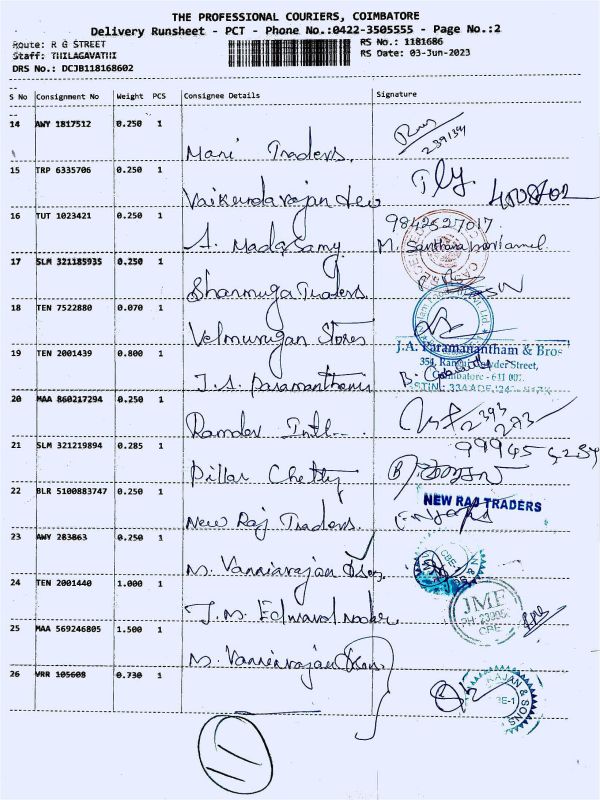 THE PROFESSIONAL COURIERS, COIMBATORE
Delivery Runsheet - PCT - Phone No.:0422-3505555 - Page No.:2
Route: R G STREET RS No.: 1181686
Staff: THILAGAVATHI RS Date: 03-Jun-2023
DRS No.: DCJB118168602
S No Consignment No Weight PCS Consignee Details Signature
14 AWY 1817512 0.250 1
239134
Mani Traders.
15 TRP 6335706 0.250 1
Vaikundarajan
16 TUT 1023421 0.250 1
9842527017
A. Madasamy M.
17 SLM 321185935 0.250 1
Shanmuga Traders
18 TEN 7522880 0.070 1
Velmurugan Stores
19 TEN 2001439 0.800 1
J.A. Paramanantham & Bros
J.A. Paramanantham B.
20 MAA 860217294 0.250 1
Ramdev Intl
21 SLM 321219894 0.285 1
Pillar Chetty
22 BLR 5100883747 0.250 1
NEW RAJ TRADERS
New Raj Traders
23 AWY 283863 0.250 1
N. Vanniarajan & Sons
24 TEN 2001440 1.000 1
JMF
CBE
J.M. Edward
25 MAA 569246805 1.500 1
N. Vanniarajan & Sons
26 VRR 105608 0.730 1
RAJAN & SONS